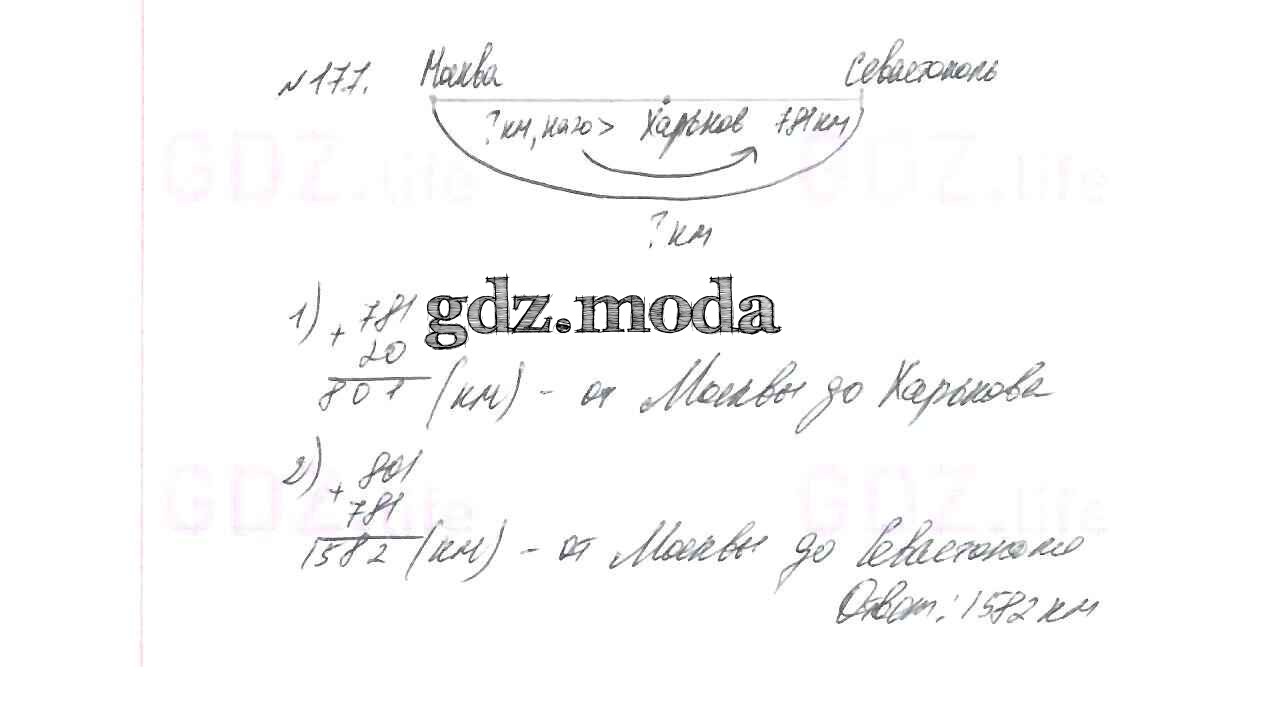 № 177. Москва Севастополь
? км, на 20 > Харьков 781 км
? км
1) + 781
20
801 (км) - от Москвы до Харькова
gdz.moda
2) + 801
781
1582 (км) - от Москвы до Севастополя
Ответ: 1582 км
GDZ.life GDZ.life
GDZ.life GDZ.life